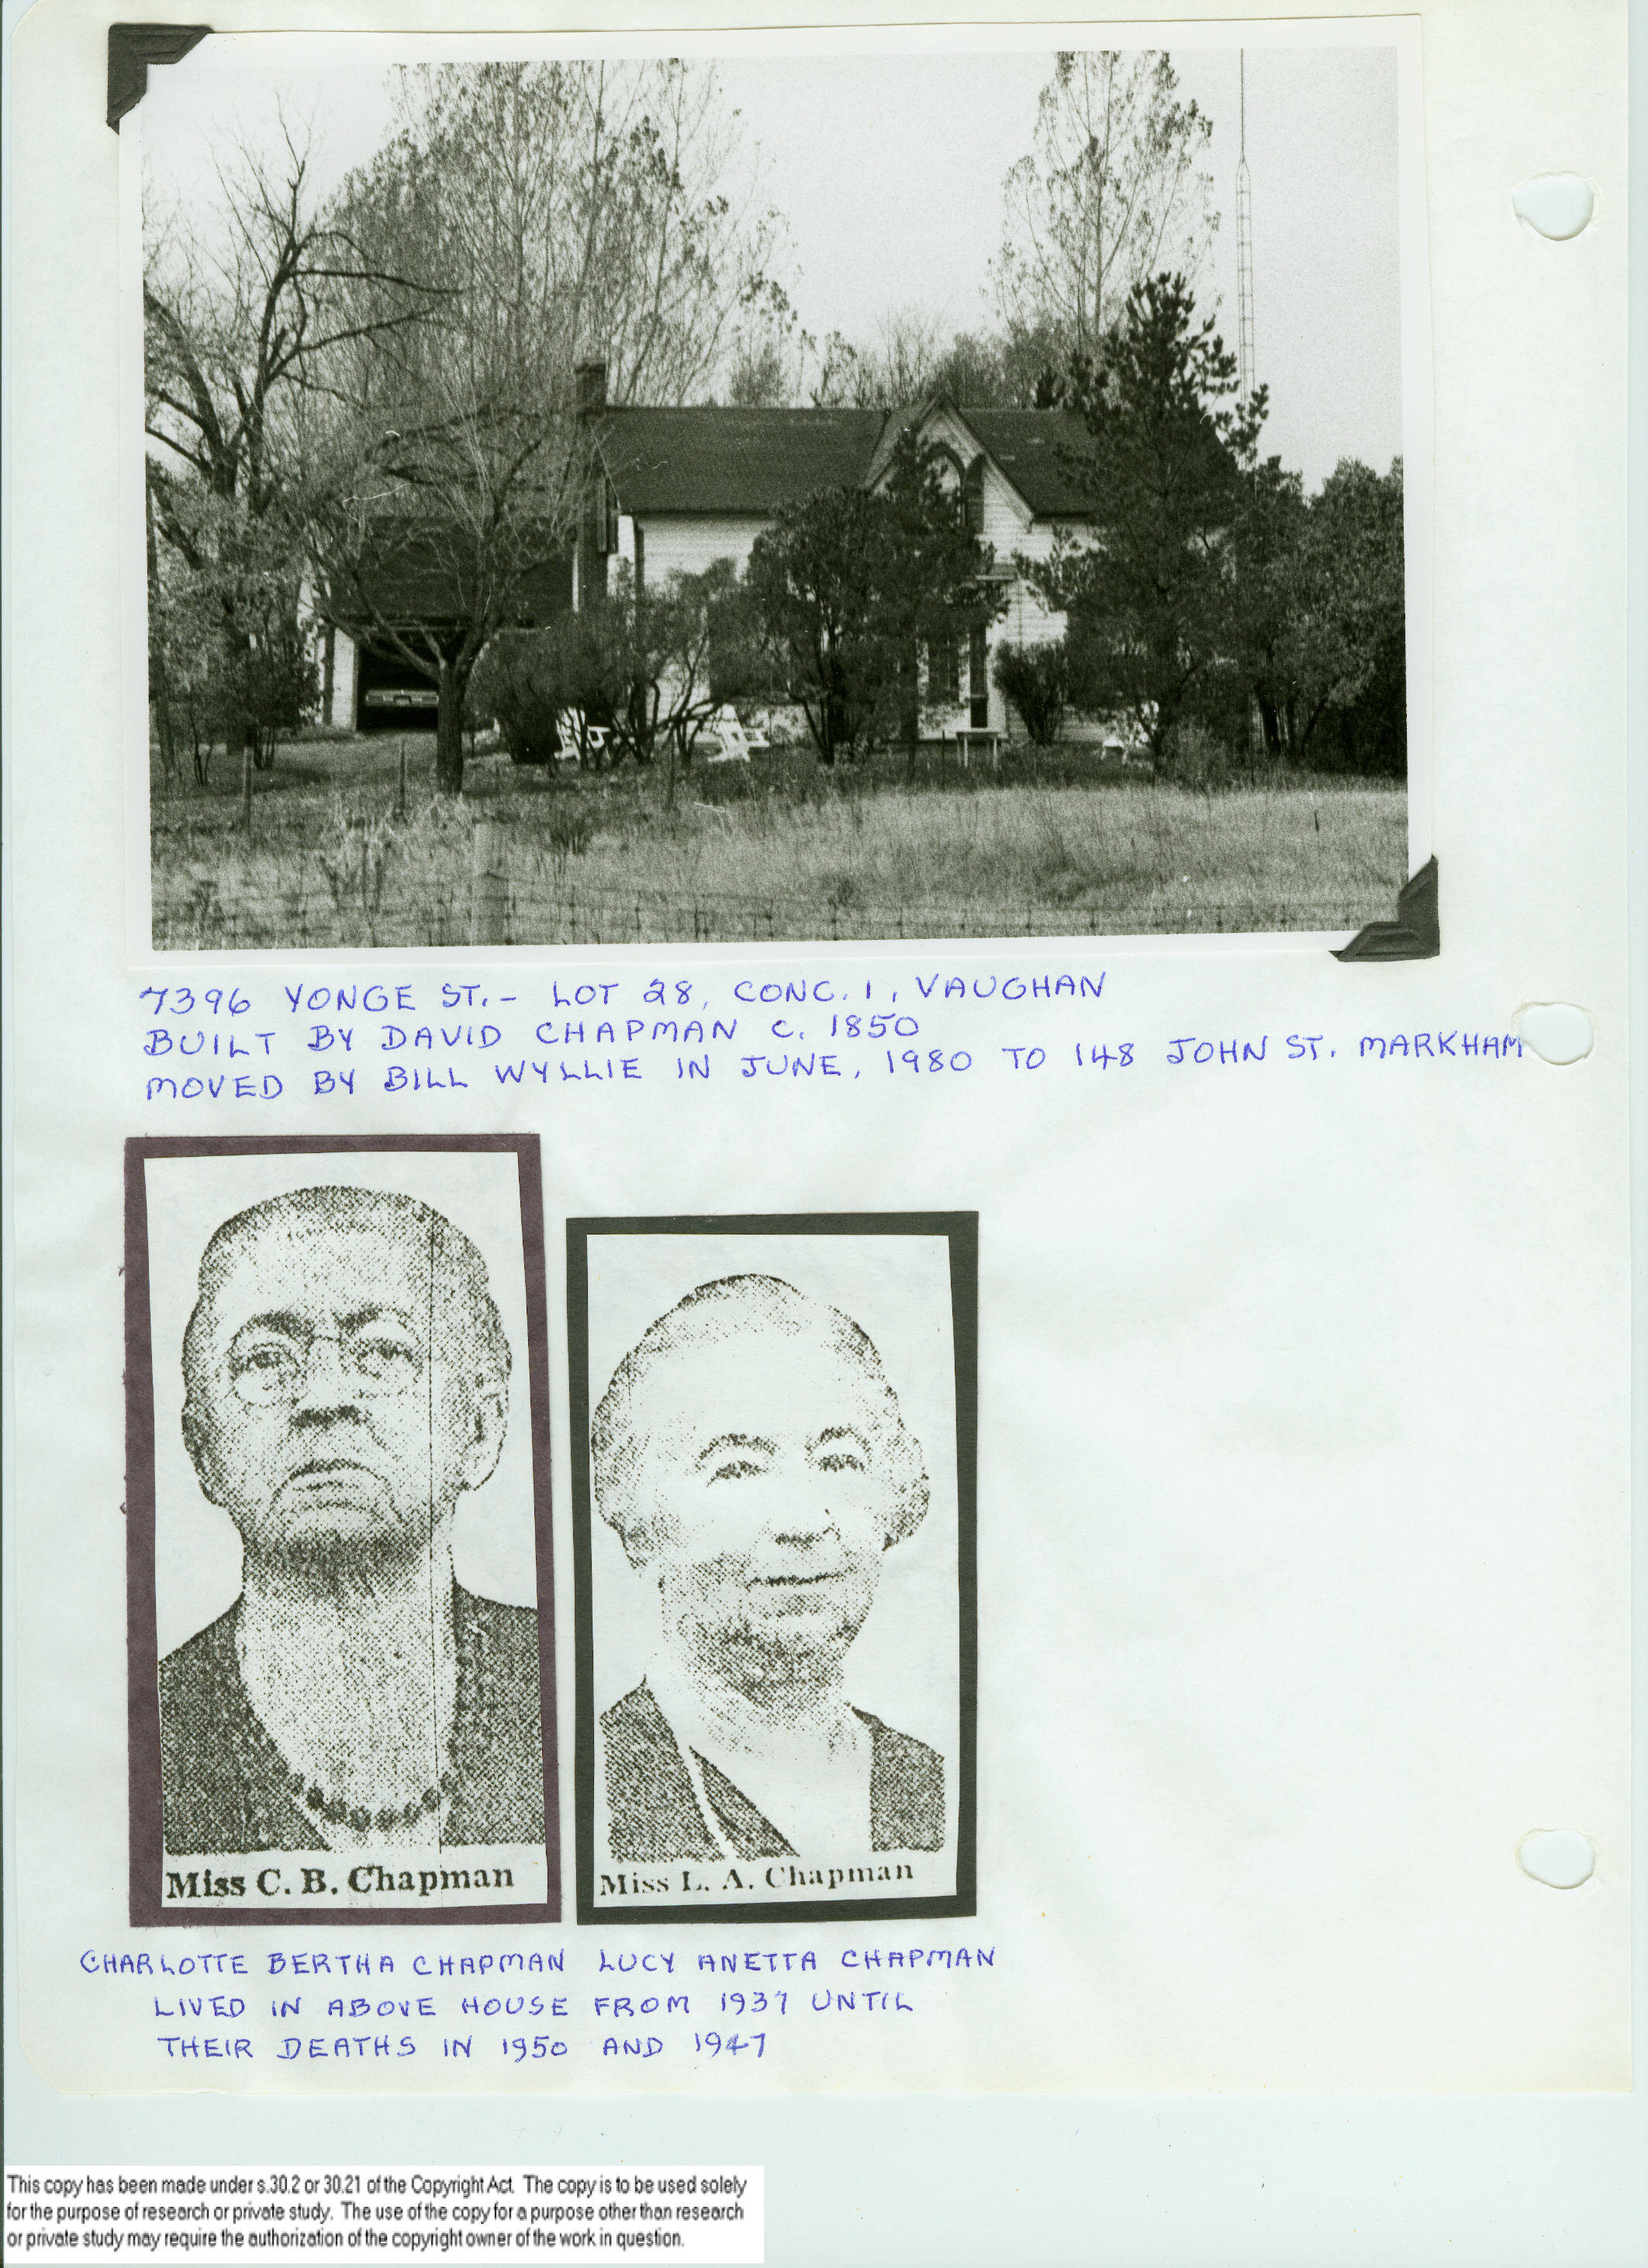 7396 YONGE ST. - LOT 28, CONC. 1, VAUGHAN
BUILT BY DAVID CHAPMAN C. 1850
MOVED BY BILL WYLLIE IN JUNE, 1980 TO 148 JOHN ST. MARKHAM
Miss C. B. Chapman
Miss L. A. Chapman
CHARLOTTE BERTHA CHAPMAN LUCY ANETTA CHAPMAN
LIVED IN ABOVE HOUSE FROM 1937 UNTIL
THEIR DEATHS IN 1950 AND 1947
This copy has been made under s.30.2 or 30.21 of the Copyright Act. The copy is to be used solely
for the purpose of research or private study. The use of the copy for a purpose other than research
or private study may require the authorization of the copyright owner of the work in question.